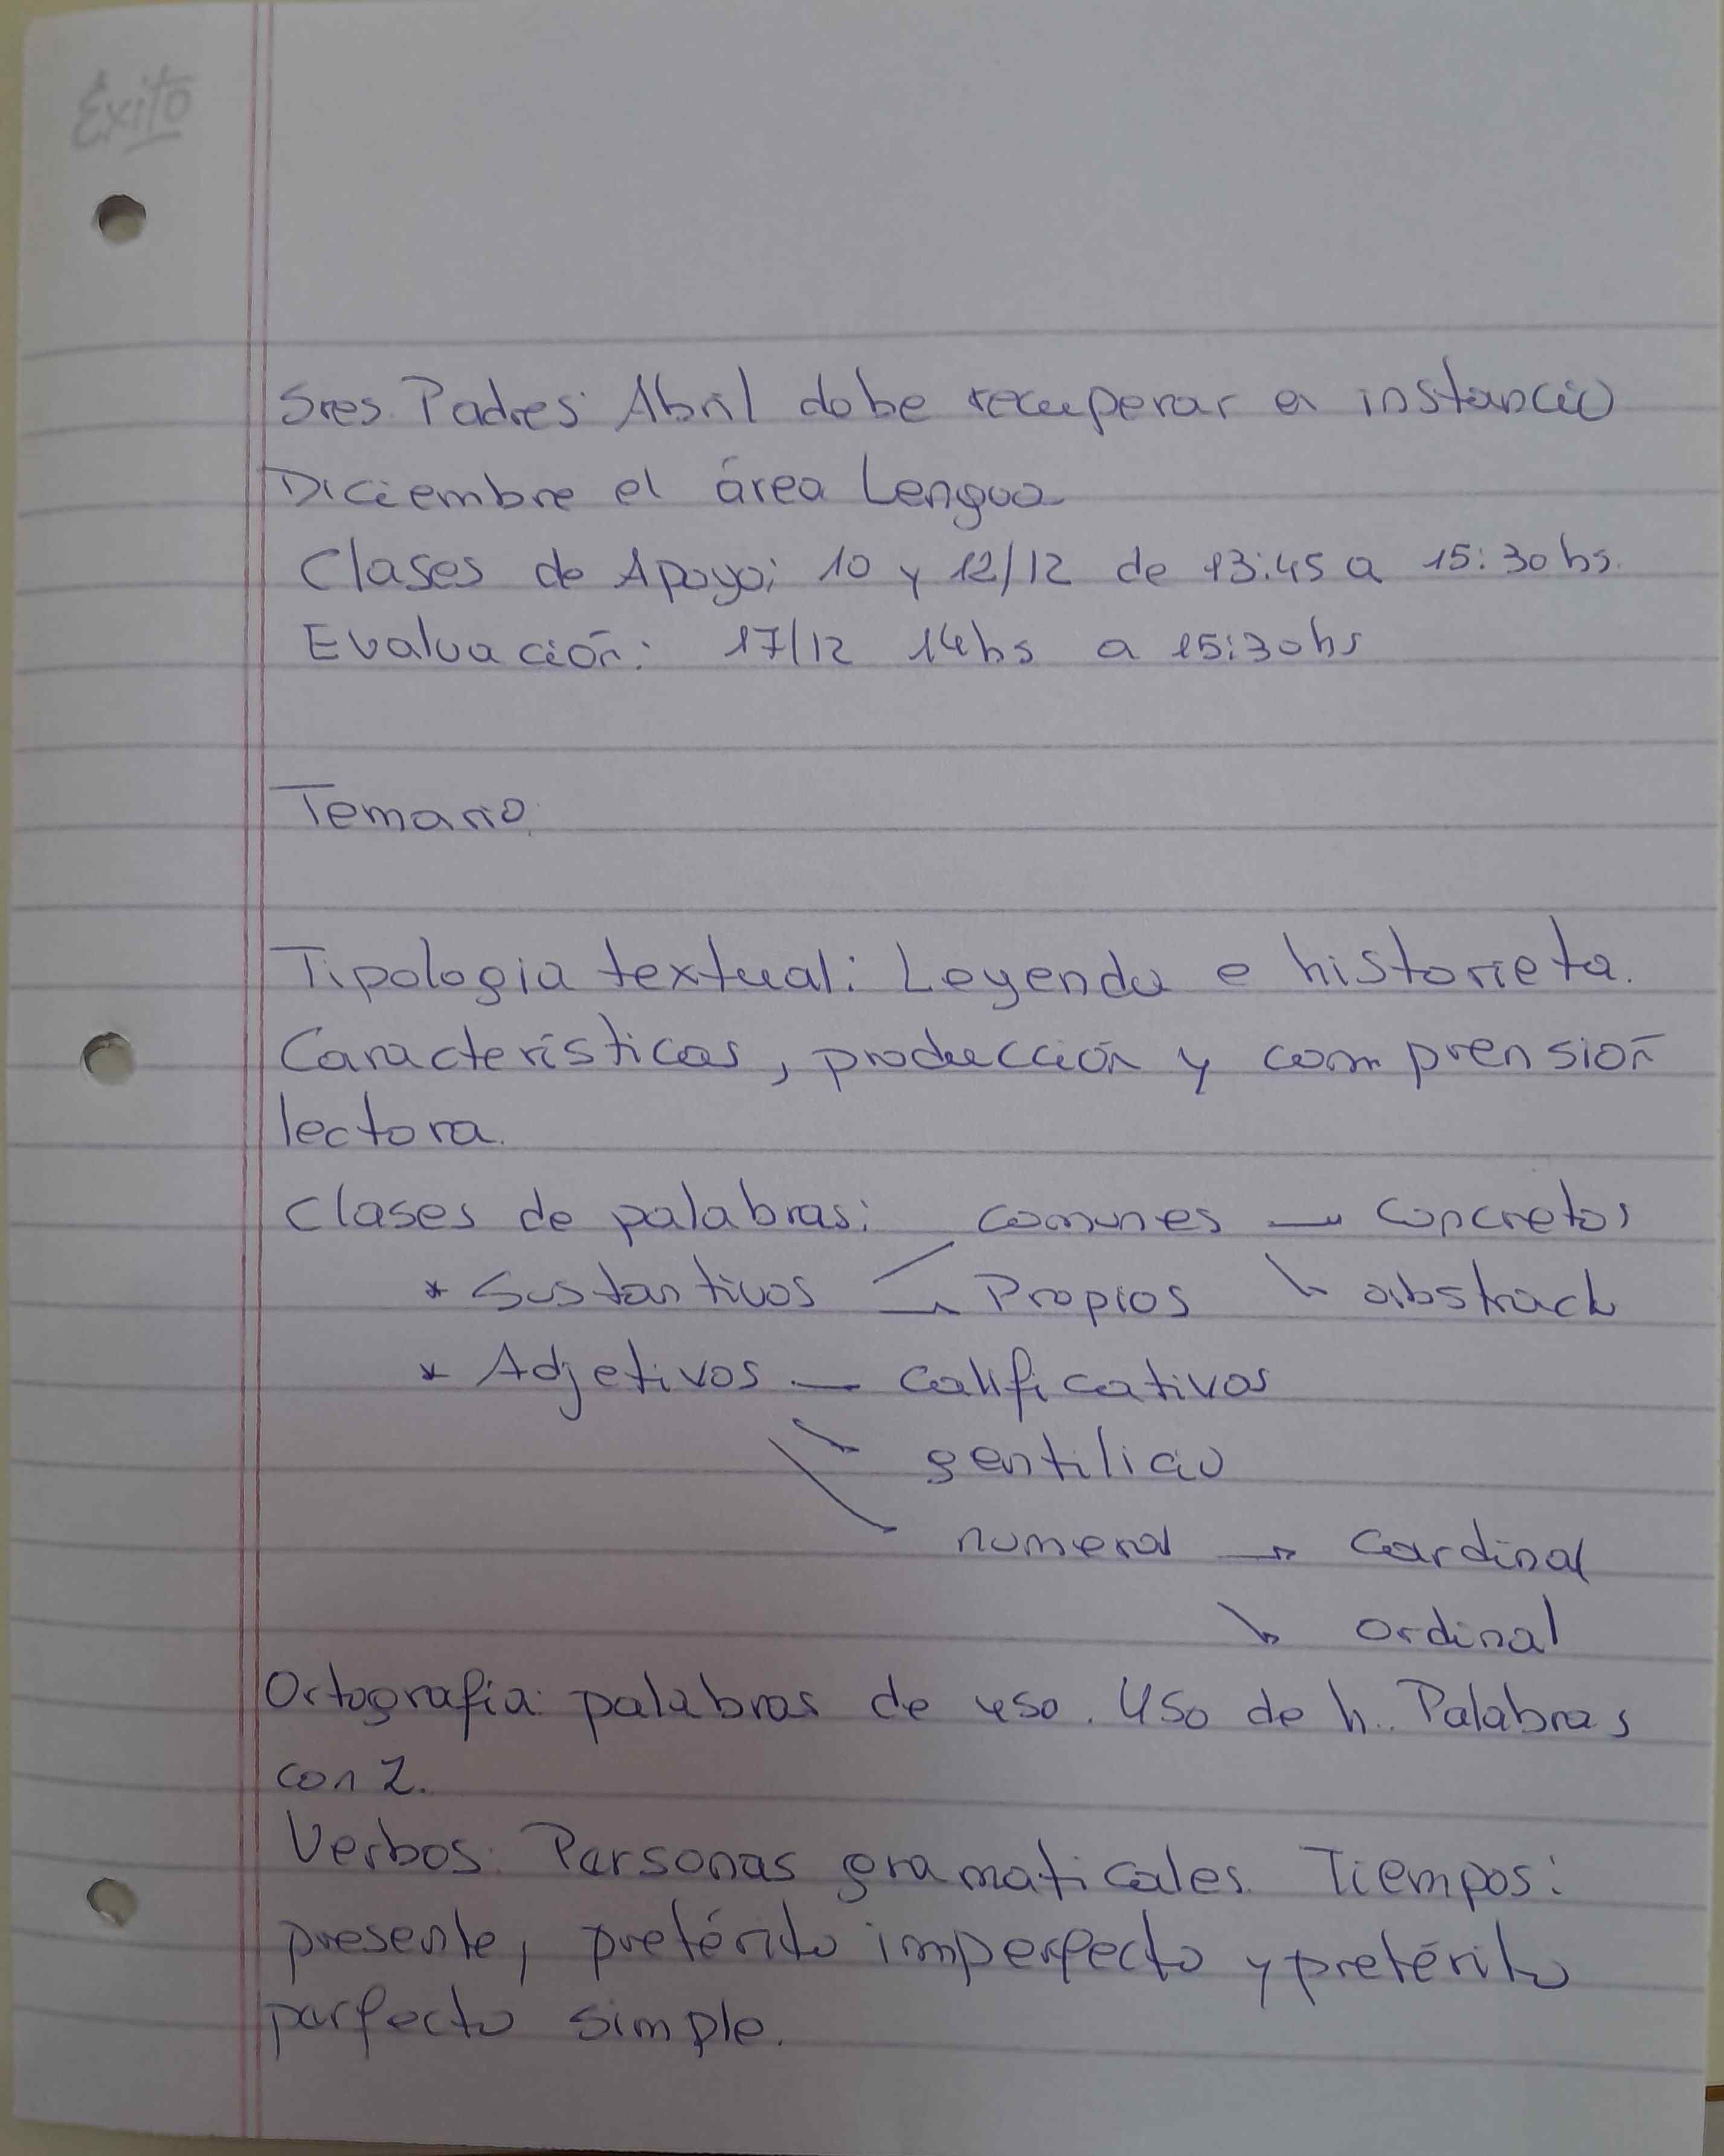 Éxito
Sres. Padres: Abril debe recuperar en instancia
Diciembre el área Lengua
Clases de Apoyo: 10 y 12/12 de 13:45 a 15:30 hs.
Evaluación: 17/12 14hs a 15:30hs
Temario:
Tipología textual: Leyenda e historieta.
Características, producción y comprensión
lectora.
Clases de palabras: comunes → concretos
* Sustantivos → Propios ↘ abstract
* Adjetivos — calificativos
gentilicio
numeral → Cardinal
↘ ordinal
Ortografía: palabras de uso. Uso de h. Palabras
con Z.
Verbos: Personas gramaticales. Tiempos:
presente, pretérito imperfecto y pretérito
perfecto simple.